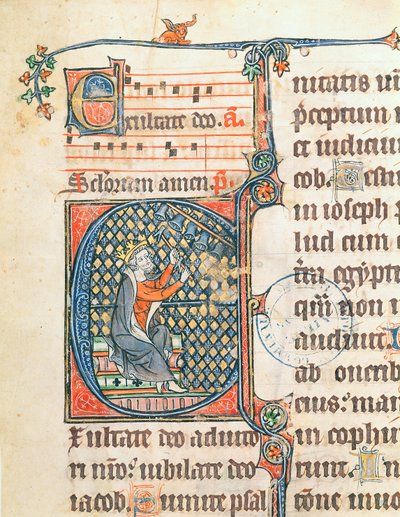 Exultate deo. a̅.
Sclorum amen. p̅.
Exultate deo adiuto
ri nr̅o: iubilate deo
iacob. Sumite psal
nitatis
p̅ceptum
et iudicium
cob. Testi
in ioseph p
lud cum e
tr̅a egypti
qua̅ non n
audiuit.
ab onerib
eius: man
in cophin
runt. I
tione inuo